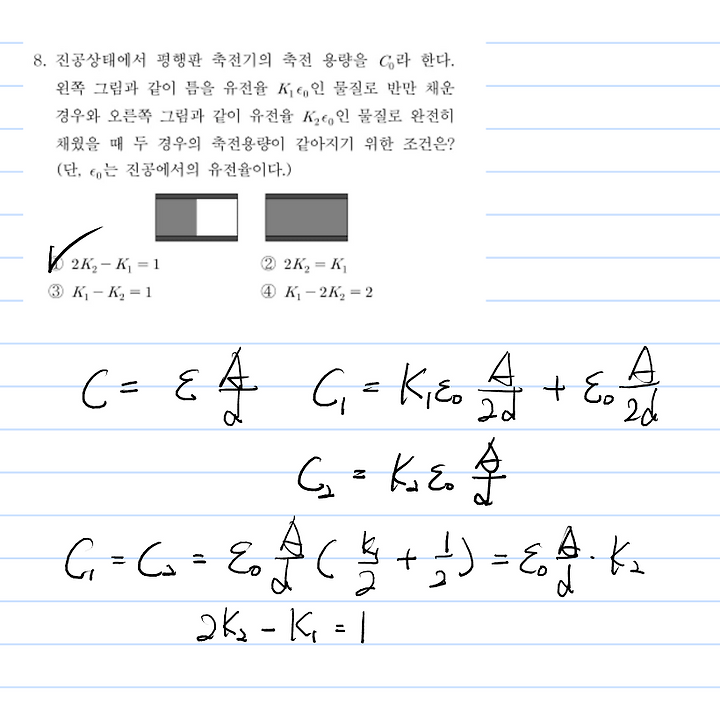 8. 진공상태에서 평행판 축전기의 축전 용량을 C₀라 한다.
왼쪽 그림과 같이 틈을 유전율 K₁ϵ₀인 물질로 반만 채운
경우와 오른쪽 그림과 같이 유전율 K₂ϵ₀인 물질로 완전히
채웠을 때 두 경우의 축전용량이 같아지기 위한 조건은?
(단, ϵ₀는 진공에서의 유전율이다.)
① 2K₂ − K₁ = 1 ② 2K₂ = K₁
③ K₁ − K₂ = 1 ④ K₁ − 2K₂ = 2
C = ε A/d C₁ = K₁ε₀ A/2d + ε₀ A/2d
C₂ = K₂ε₀ A/d
C₁ = C₂ = ε₀ A/d (k₁/2 + 1/2) = ε₀ A/d · K₂
2K₂ − K₁ = 1